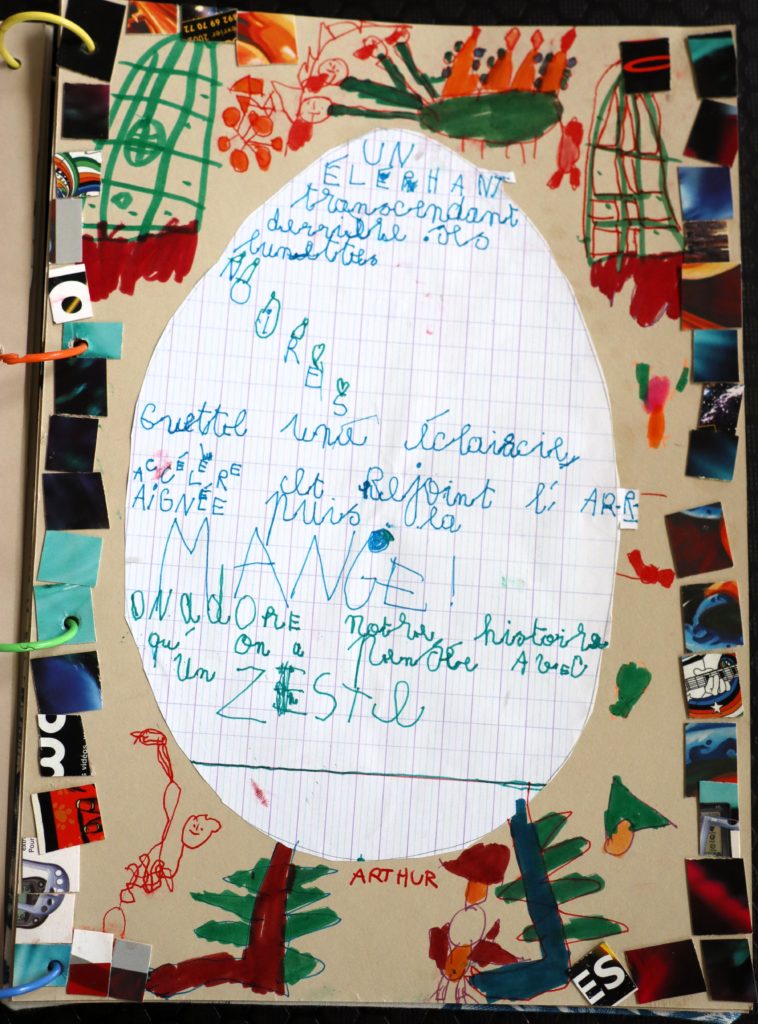 UN
ÉLEPHANT
transcendant
derrière ses
lunettes
NOIRES
Guette une éclaircie,
ACCÉLÈRE et Rejoint l' ARR
AIGNÉE puis la
MANGE!
ON adORE notre histoire
qu' on a AVEC
un ZESTE
ARTHUR
ES